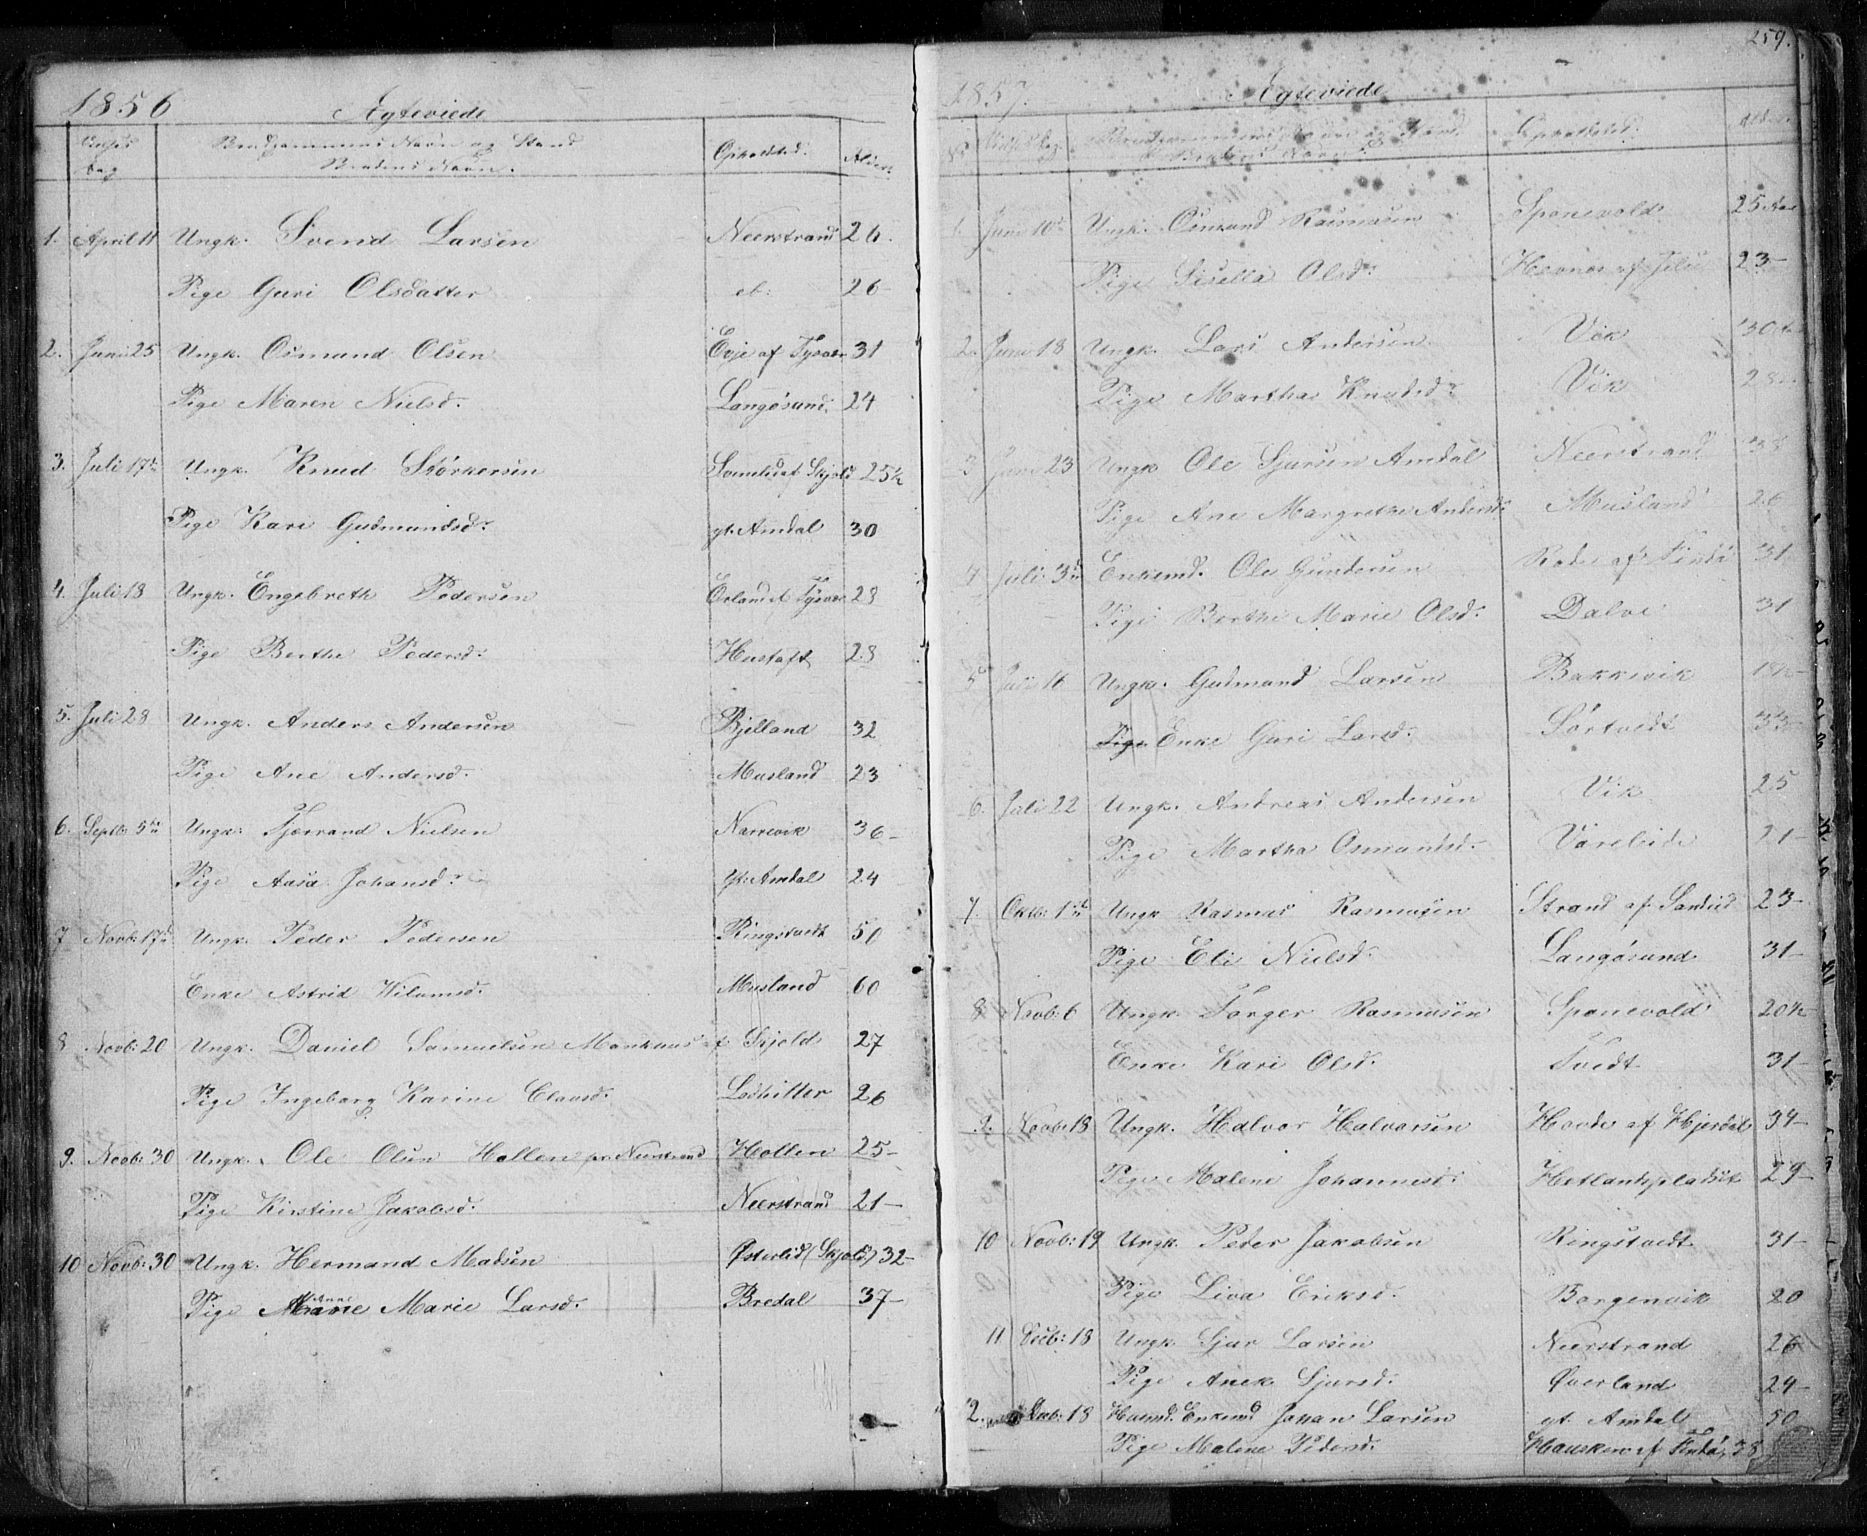 1856
Ægteviede
Vielses Dag
Brudgommens Navn og Stand
Brudens Navn.
Opholdsted.
Alder
1. April 11 Ungk. Svend Larsen Neerstrand 26.
Pige Guri Olsdatter 26
2. Juni 25 Ungk. Osmund Olsen Evje af Tysvær 31
Pige Maren Nielsd. Langøsund 24
3. Juli 17de Ungk. Knud Størkersen af Skjold 25½
Pige Kari Gudmundsd: gt. Amdal 30
4. Juli 18 Ungk. Engebreth Pedersen Tysvær 28
Pige Berthe Pedersd: Hustoft 28
5. Juli 28 Ungk. Anders Andersen Bjelland 32
Pige Ane Andersd. Musland 23
6. Septb: 5te Ungk. Tjerrand Nielsen Narrevik 36–
Pige Aasa Johansd: gt. Amdal 24
7 Novb: 17de Ungk. Peder Pedersen Ringstvedt 50
Enke Astrid Wilumsd. Musland 60
8 Novb: 20 Ungk. Daniel Samuelsen af Skjold 27
Pige Ingeborg Karine Clausd. 26
9. Novb: 30 Ungk. Ole Olsen Hollen Neerstrand Hollen 25–
Pige Kirstine Jakobsd. Neerstrand 21–
10 Novb: 30 Ungk. Hermand Madsen Østerlid (Skjold) 32–
Pige Marie Larsd. Bredal 37–
259.
1857.
Ægteviede
No
Brudgommens Navn og Stand
Brudens Navn.
Opholdsted.
Alder.
1. Juni 10de Ungk. Osmund Rasmusen Sponevold 25 Aar
Pige Sisella Olsd: 23–
2. Juni 18 Ungk. Lars Andersen Vik 30
Pige Martha Knudsd: Vik 28
3 Juni 23 Ungk Ole Sjursen Amdal Neerstrand 38
Pige Ane Margrethe Andersd: Musland 26
4 Juli 3die Enkemd. Ole Gundersen 31
Pige Berthe Marie Olsd: Dalve 31
5 Juli 16 Ungk. Gudmund Larsen Bakkevik
Pige Enke Guri Larsd. Sørtvedt 33
6. Juli 22 Ungk. Andreas Andersen Vik 25
Pige Martha Osmundsd. Vareleide 21–
7. Oktb: 1ste Ungk Rasmus Rasmusen Strand af Sandeid 23–
Pige Eli Nielsd. Langøsund 31–
8 Novb: 6 Ungk. Torger Rasmusen Sponevold 20½–
Enke Kari Olsd. Tvedt 31–
9. Novb: 18 Ungk. Halvor Halvorsen Hovde af Hjersdal 34–
Pige Malene Johannesd: Hetlandspladset 29–
10 Novb: 19 Ungk. Peder Jakobsen Ringstvedt 31–
Pige Liva Eriksd. Borgenvik 20
11 Decb: 18 Ungk. Sjur Larsen Neerstrand 26
Pige Anek Sjursd. Øverland 24–
12. Decb: 18 Enkemd Johan Larsen gt. Amdal 50
Pige Malene Pedersd. Hausken af Findø, 38